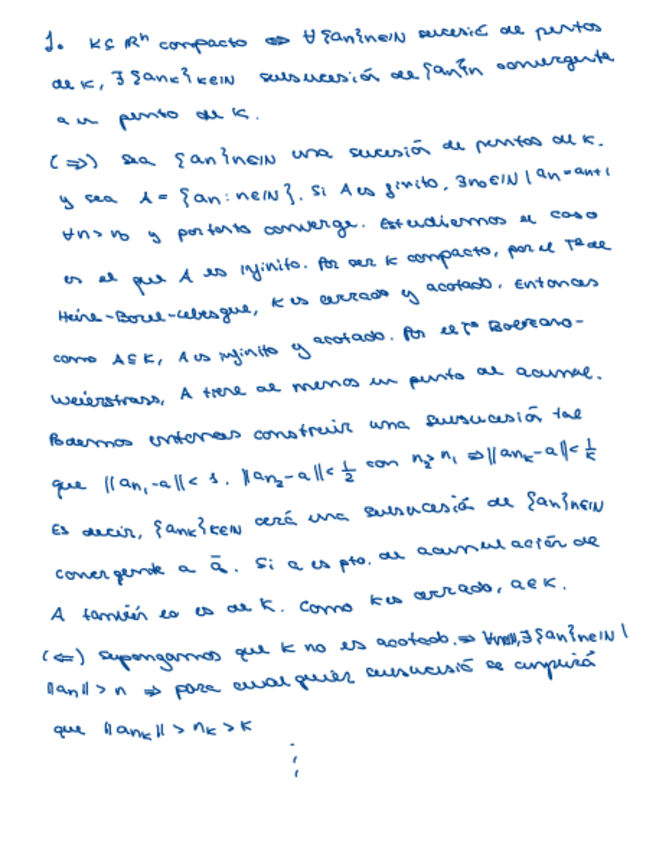 1. K⊆ℝⁿ compacto ⇔ ∀{an}n∈ℕ sucesió de puntos
de K, ∃{ank}k∈ℕ subsucesión de {an}n convergente
a un punto de K.
(⇒) Sea {an}n∈ℕ una sucesión de puntos de K.
y sea A = {an: n∈ℕ}. Si A es finito, ∃n₀∈ℕ | an=an+1
∀n>n₀ y por tanto converge. Estudiemos el caso
es el que A es infinito. Por ser K compacto, por el Tª de
Heine-Borel-Lebesgue, K es cerrado y acotado. Entonces
como A⊆K, A es infinito y acotado. Por el Tª Bolzano-
Weierstrass, A tiene al menos un punto de acumul.
Podemos entonces construir una subsucesión tal
que ||an₁-a||< 1. ||an₂-a||< 1/2 con n₂>n₁ ⇒||ank-a||< 1/k
Es decir, {ank}k∈ℕ será una subsucesión de {an}n∈ℕ
convergente a ā. Si a es pto. de acumulación de
A también lo es de K. Como K es cerrado, a∈K.
(⇐) Supongamos que K no es acotado.⇒ ∀n∈ℕ,∃{an}n∈ℕ |
||an||>n ⇒ para cualquier subsucesió se cumplirá
que ||ank|| > nk > k